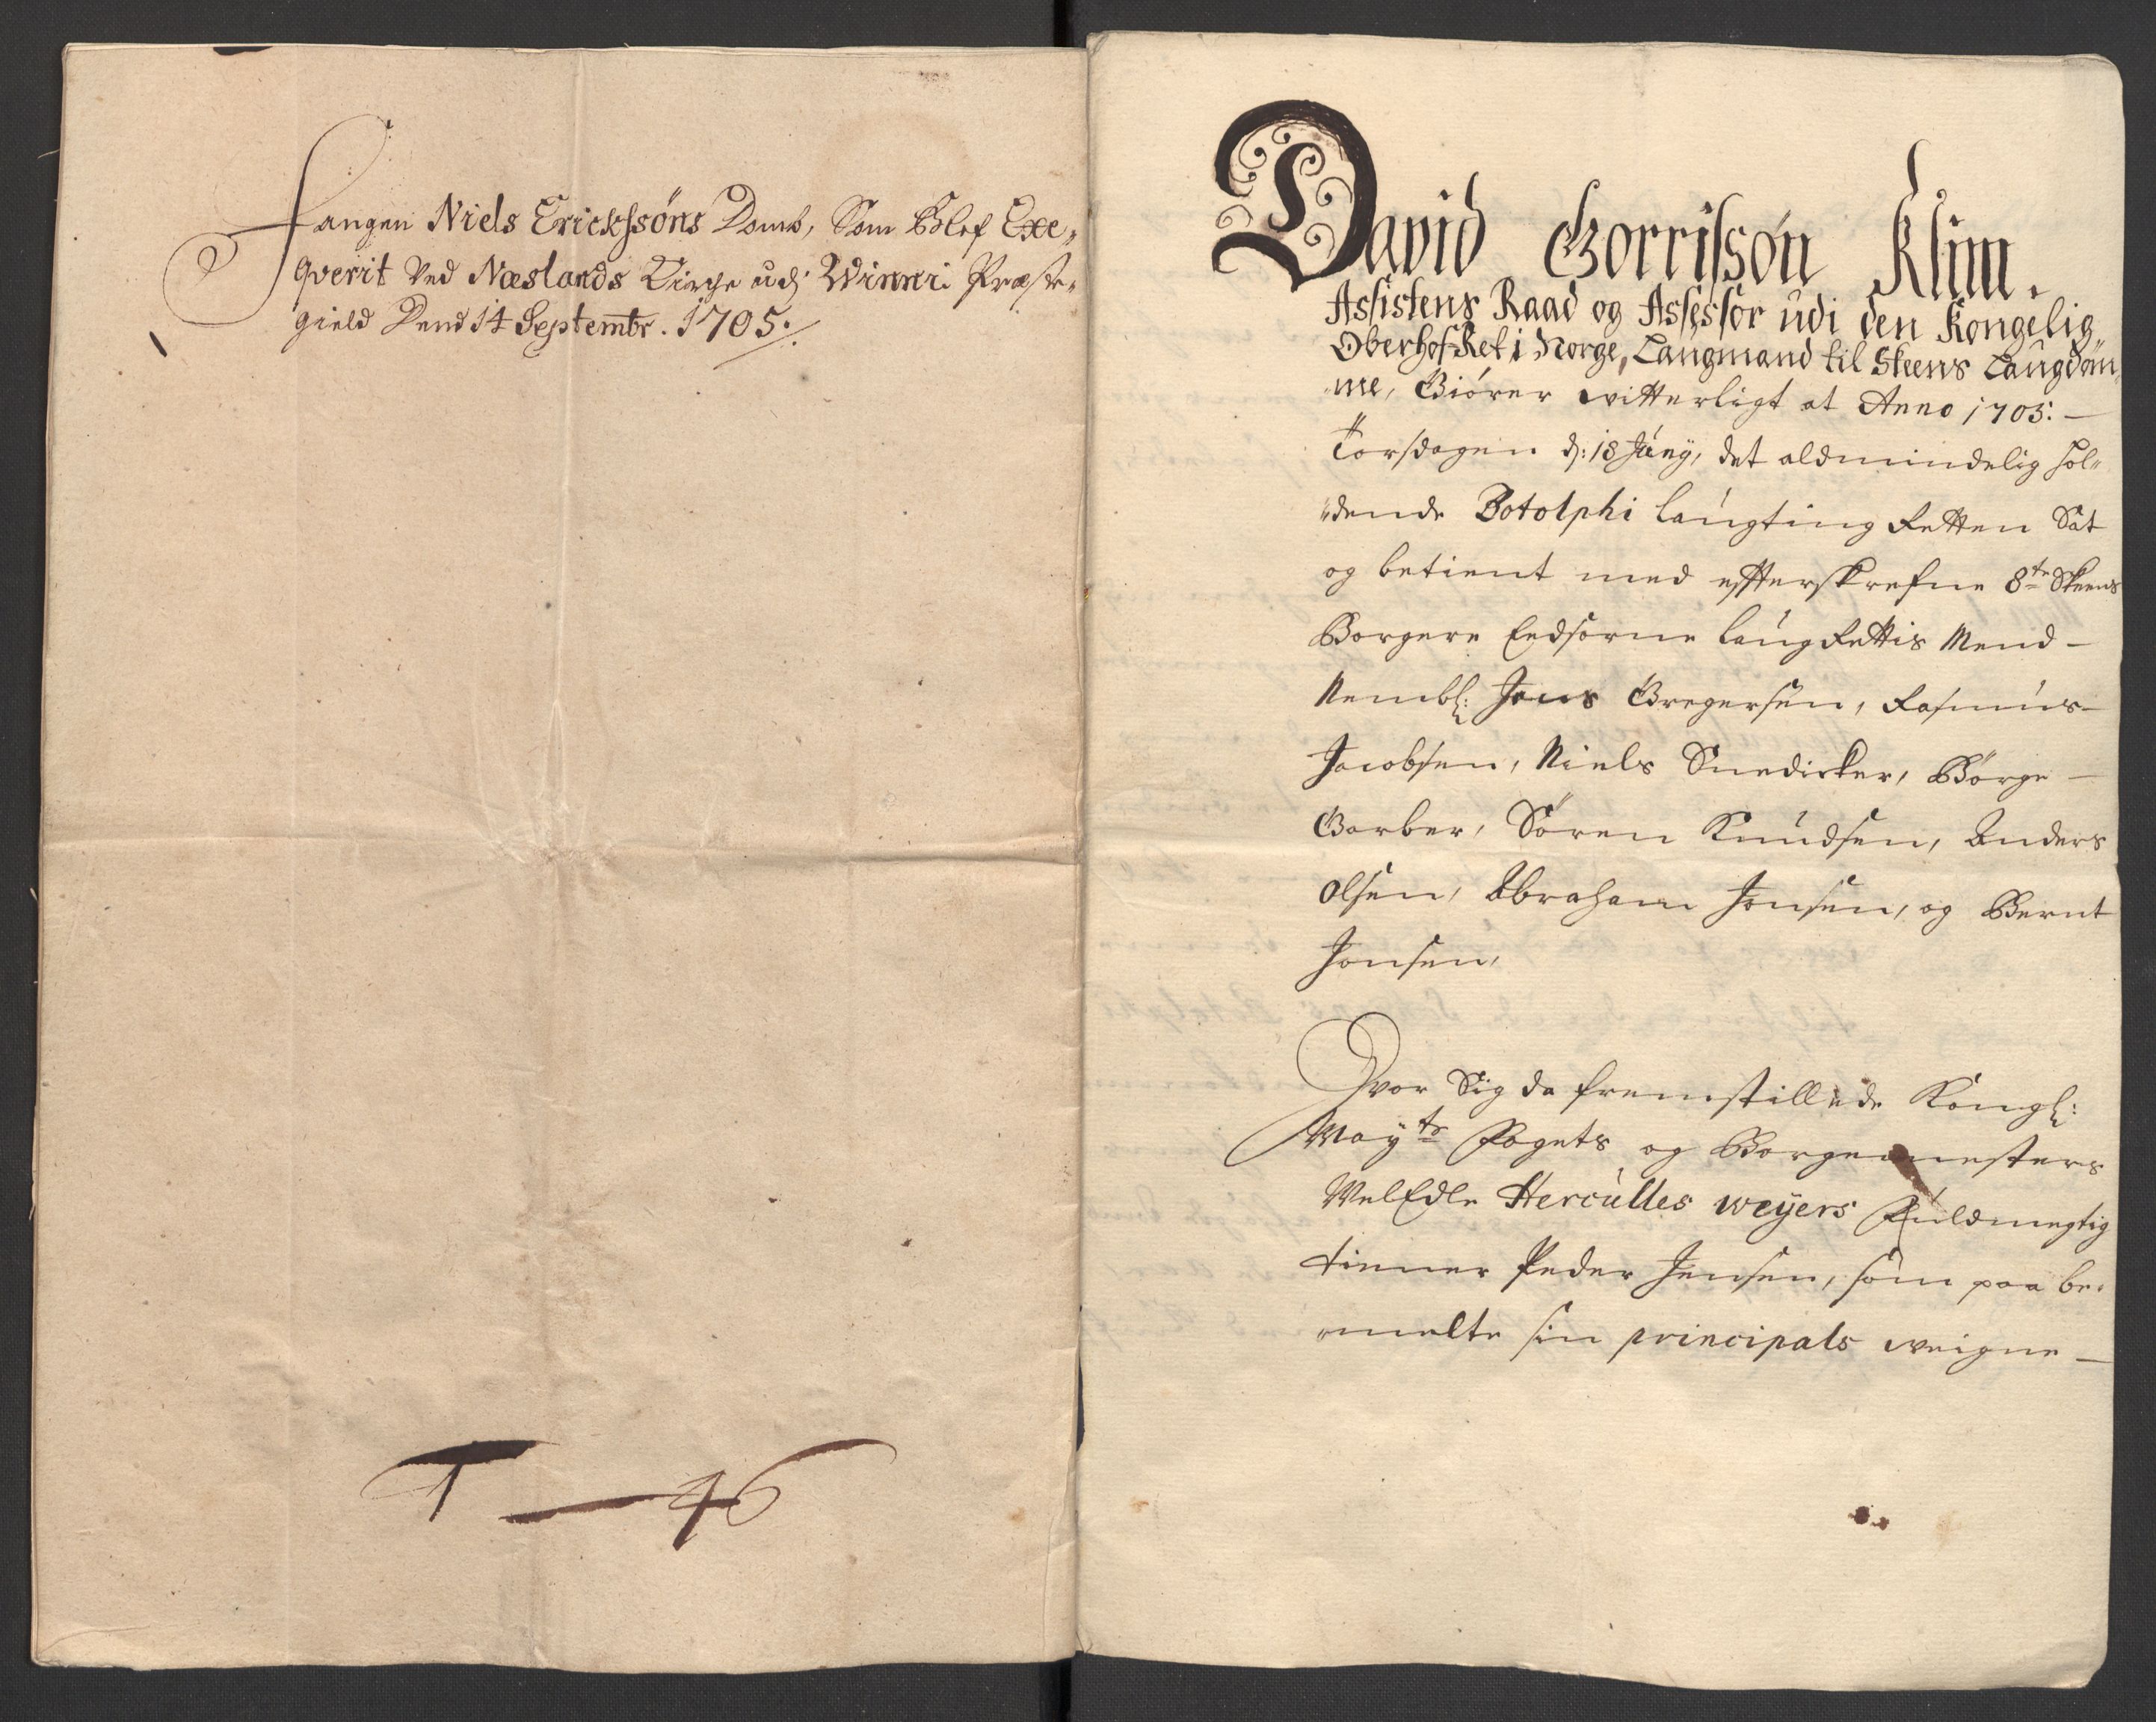 Fangen Niels Erickssöns Domb, Som Blef Exe„
qverit Ved Næslands Kirche udj Winnri Præste„
gield Dend 14 Septembr. 1705.
T — 46
David Gorrissøn Klim.
Assistens Raad og Assessor udi den Kongelig„
Oberhof-Ret i Norge, Laugmand til Skeens Laugdöm„
me, Giörer vitterligt at Anno 1705. —
Torsdagen d: 18 Juny, det aldmindelig hol„
„dende Botolphi laugting Retten Sat
og betient med effterskrefne 8te Skeens
Borgere Eedsorne laugRettis Mend —
Nembl: Jens Gregersen, Rasmus —
Jacobsen, Niels Snedicker, Börge —
Garber, Sören Knudsen, Anders
Olsen, Abraham Jensen, og Bernt
Jensen,
Hvor Sig da fremstillede Kongl:
Mayts Fogets og Borgemesters
WelEdle Herculles weyers Fuldmegtig
tienner Peder Jensen, som paa be„
„melte sin principals veigne —